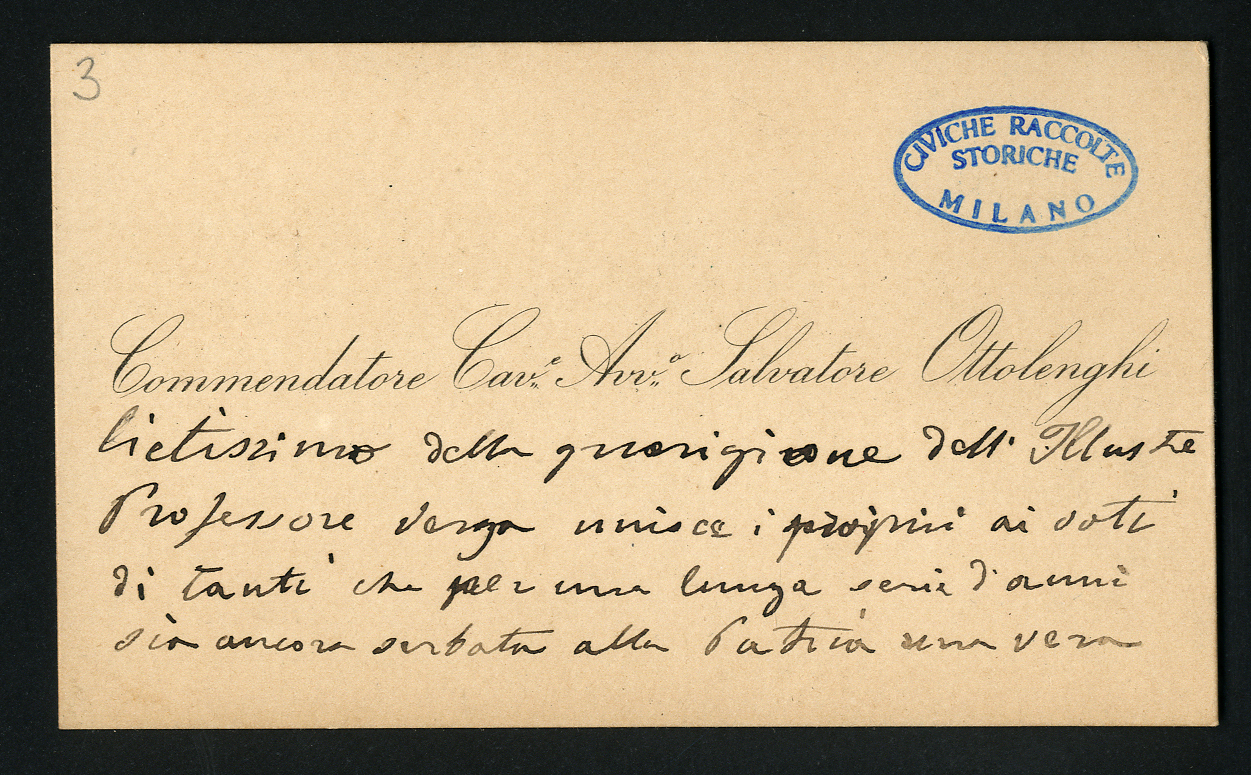 3
CIVICHE RACCOLTE
STORICHE
MILANO
Commendatore Cav.e Avv.o Salvatore Ottolenghi
lietissimo della guarigione dell' Illustre
Professore Verga unisce i proprii ai voti
di tanti che per una lunga serie d'anni
sia ancora serbata alla Patria una vera